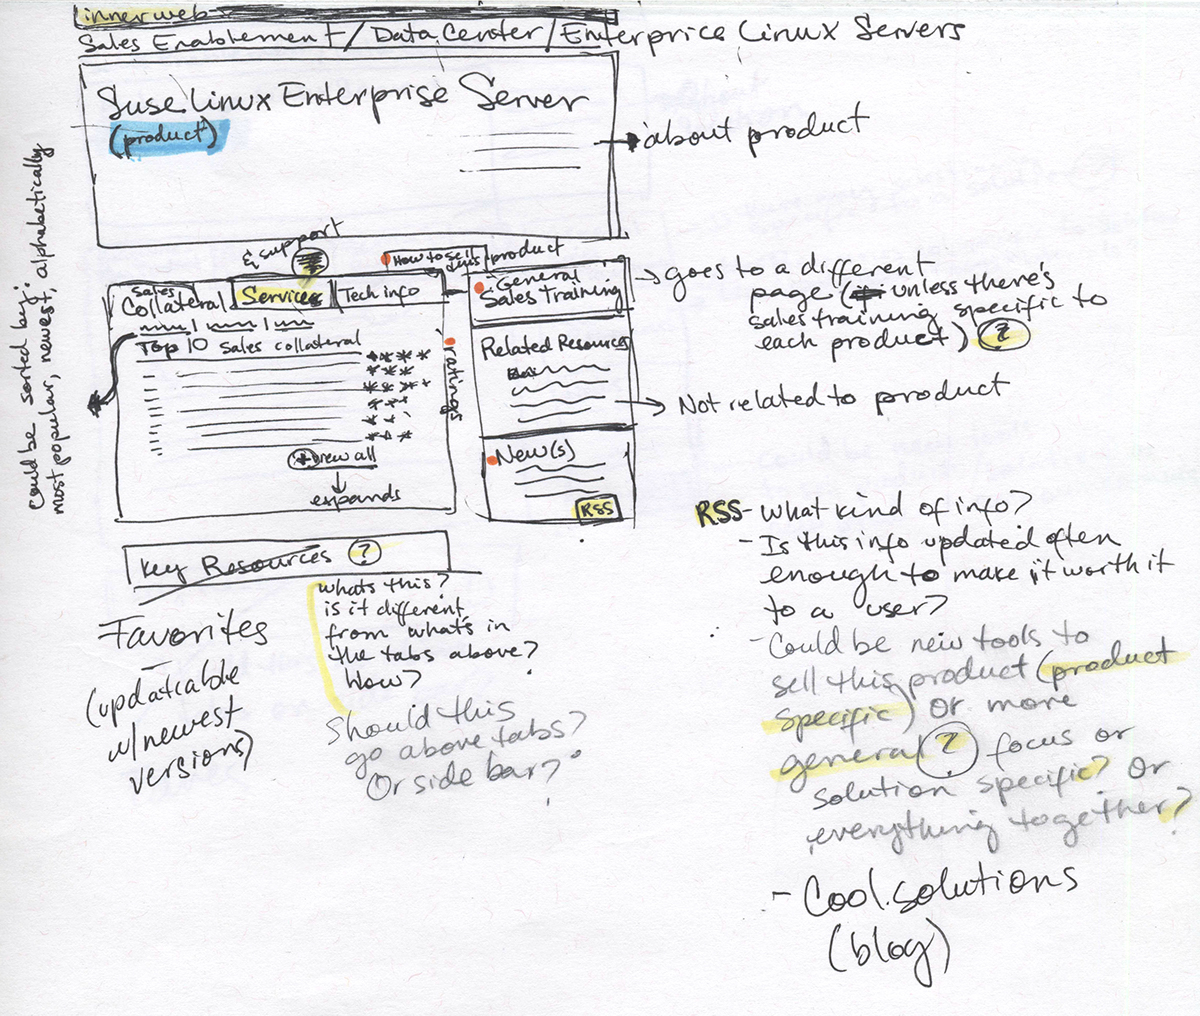 innerweb
Sales Enablement / Data Center / Enterprice Linux Servers
Suse Linux Enterprise Server
(product)
about product
& support
How to sell this product
Sales
Collateral
Services
Tech info
General
Sales Training
goes to a different
page (unless there's
sales training specific to
each product) ?
Top 10 Sales collateral
ratings
view all
expands
could be sorted by:
most popular, newest, alphabetically
Related Resources
Not related to product
New(s)
RSS
Key Resources ?
whats this?
is it different
from what's in
the tabs above?
How?
Should this
go above tabs?
Or side bar?
Favorites
(updateable
w/newest
versions)
RSS - what kind of info?
- Is this info updated often
enough to make it worth it
to a user?
- Could be new tools to
sell this product (product
specific) or more
general ? focus or
solution specific? Or
everything together?
- Cool.solutions
(blog)